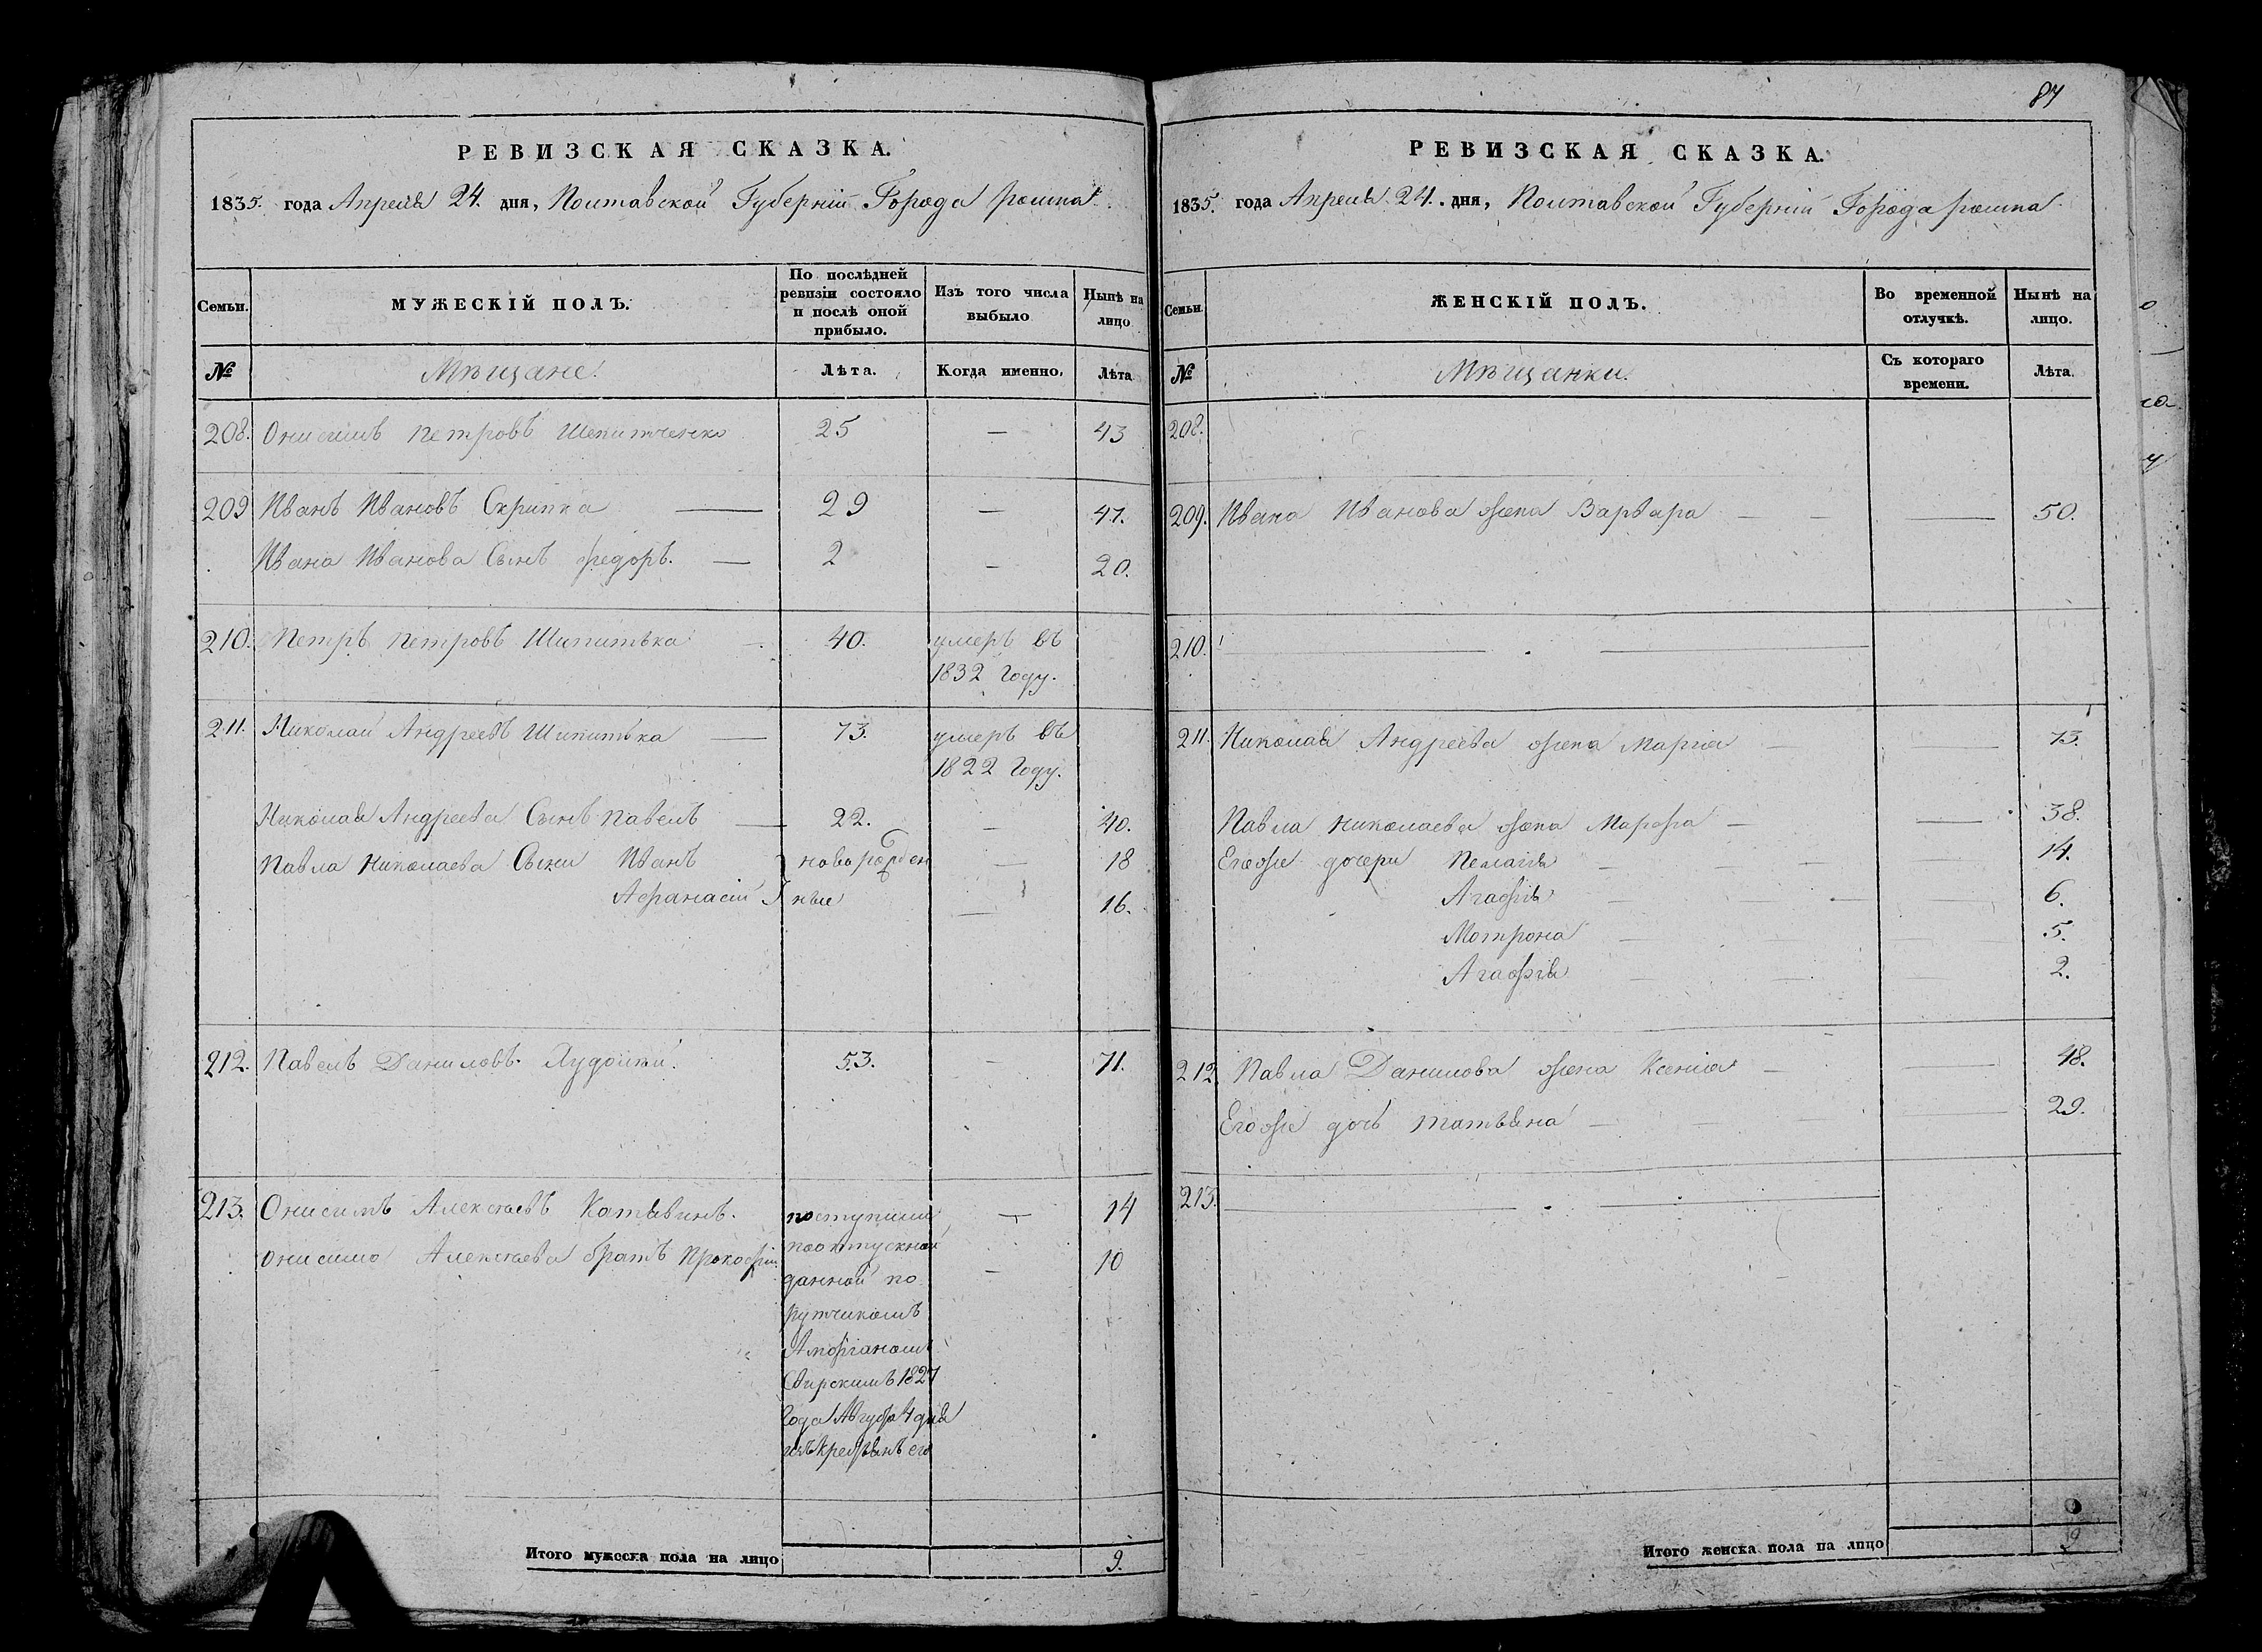 РЕВИЗСКАЯ СКАЗКА.
1835. года Апреля 24. дня, Полтавской Губерніи Города Ромна
Семьи.
МУЖЕСКІЙ ПОЛЪ.
По послѣдней ревизіи состояло и послѣ оной прибыло.
Изъ того числа выбыло
Нынѣ на лицо
№
Мѣщане.
Лѣта.
Когда именно,
Лѣта
208. Онисимъ Петровъ 25 — 43
209 Иванъ Ивановъ Скрипка — 29 — 47.
Ивана Иванова Сынъ Федоръ. — 2 — 20.
210. Петръ Петровъ Шипитька 40. умеръ въ
1832 году.
211. Николай Андреевъ Шипитька — 73. умеръ въ
1822 году.
Николая Андреева Сынъ Павелъ — 22. — 40.
Павла Николаева Сыни Иванъ новорожден — 18
Афанасій ные — 16.
212. Павелъ Даниловъ 53. — 71.
213. Онисимъ Алексѣевъ поступили — 14
Онисима Алексѣева братъ Прокофій поотпускной — 10
данной по
ручикомъ
Свирскимъ 1827
года Августа 4 дня
изъ крестьянъ его
Итого мужеска пола на лицо 9.
87
РЕВИЗСКАЯ СКАЗКА.
1835. года Апреля 24. дня, Полтавской Губерніи Города Ромна
Семьи.
ЖЕНСКІЙ ПОЛЪ.
Во временной отлучкѣ.
Нынѣ на лицо.
№
Мѣщанки.
Съ котораго времени.
Лѣта.
208.
209. Ивана Иванова жена Варвара — — 50.
210.
211. Николая Андреева жена Марія — — 73.
Павла Николаева жена Марфа — — 38.
Егоже дочери Пелагія — — 14.
Агафія — — 6.
Мотрона — — 5.
Агафія — — 2.
212. Павла Данилова жена Ксенія — — 48.
Егоже дочь Татьяна — — 29.
213.
Итого женска пола на лицо 9